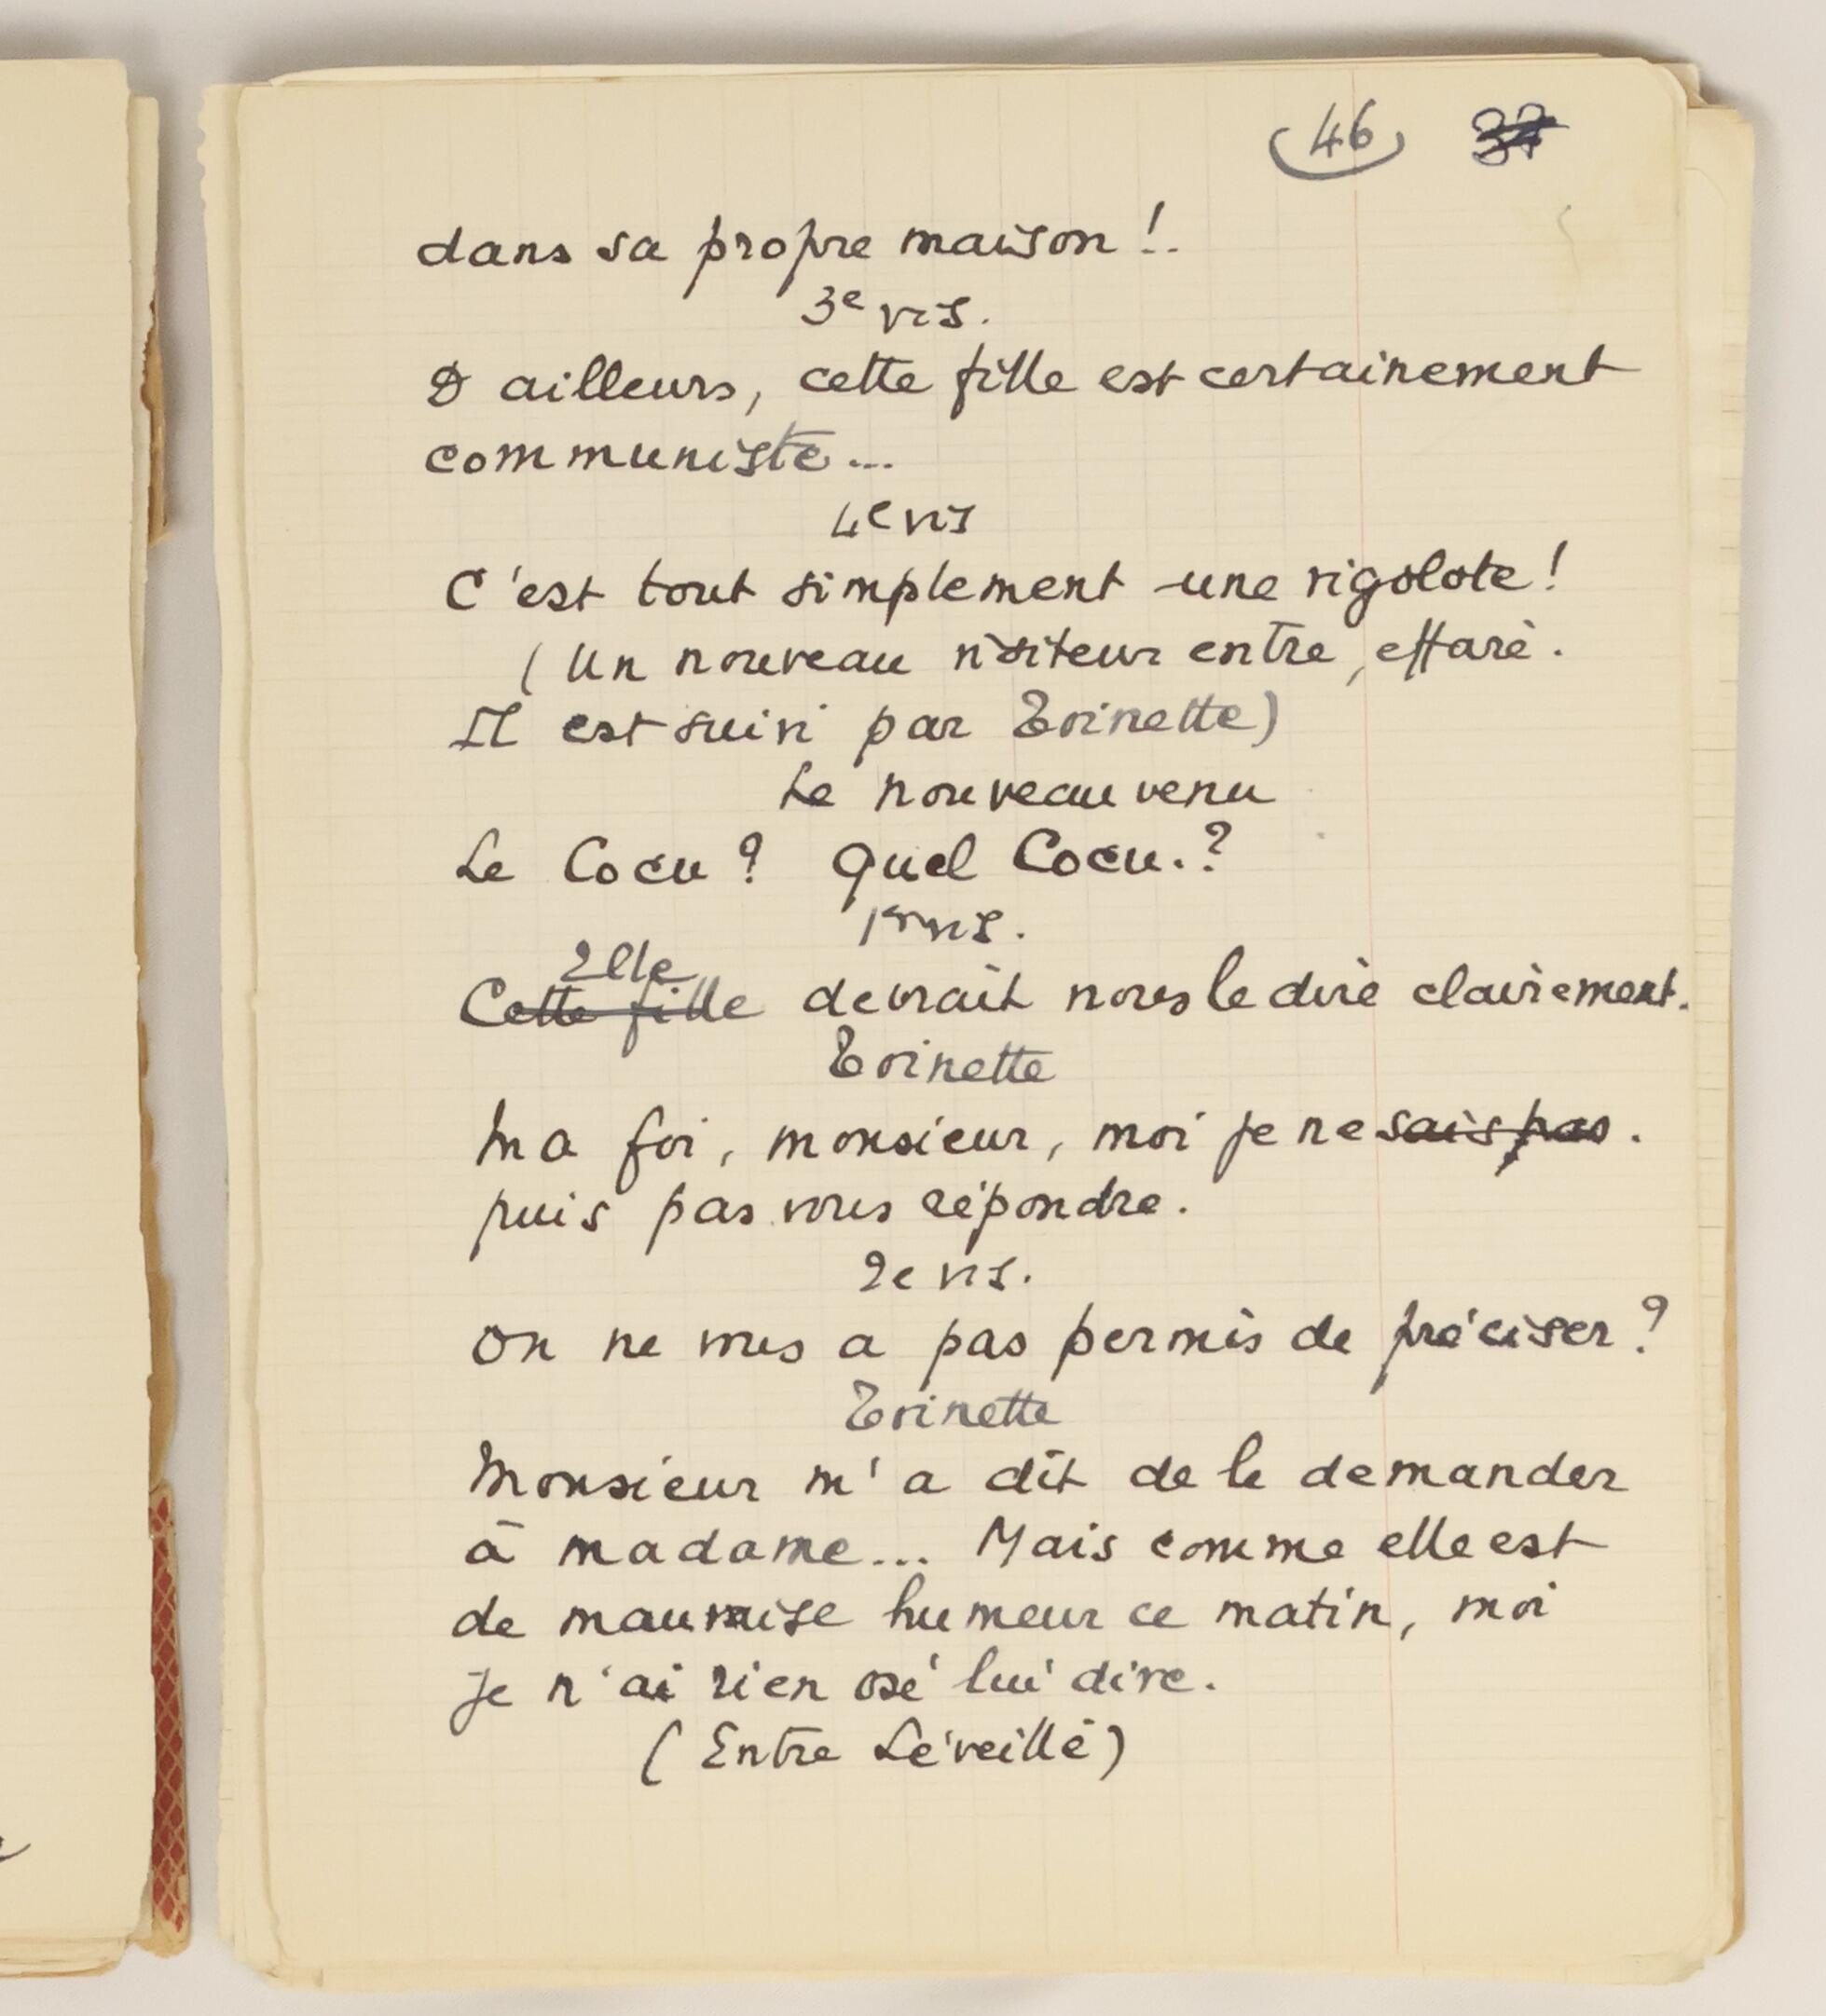 46 37
dans sa propre maison !.
3e vis.
D ailleurs, cette fille est certainement
communiste...
4e vis
C'est tout simplement une rigolote !
(Un nouveau visiteur entre, effaré.
Il est suivi par Toinette)
Le nouveau venu
Le Cocu ? Quel Cocu. ?
1er vis.
Elle
Cette fille devrait nous le dire clairement.
Toinette
Ma foi, monsieur, moi je ne sais pas.
puis pas vous répondre.
2e vis.
On ne vous a pas permis de préciser ?
Toinette
Monsieur m'a dit de le demander
à madame... Mais comme elle est
de mauvaise humeur ce matin, moi
je n'ai rien osé lui dire.
(Entre Léveillé)